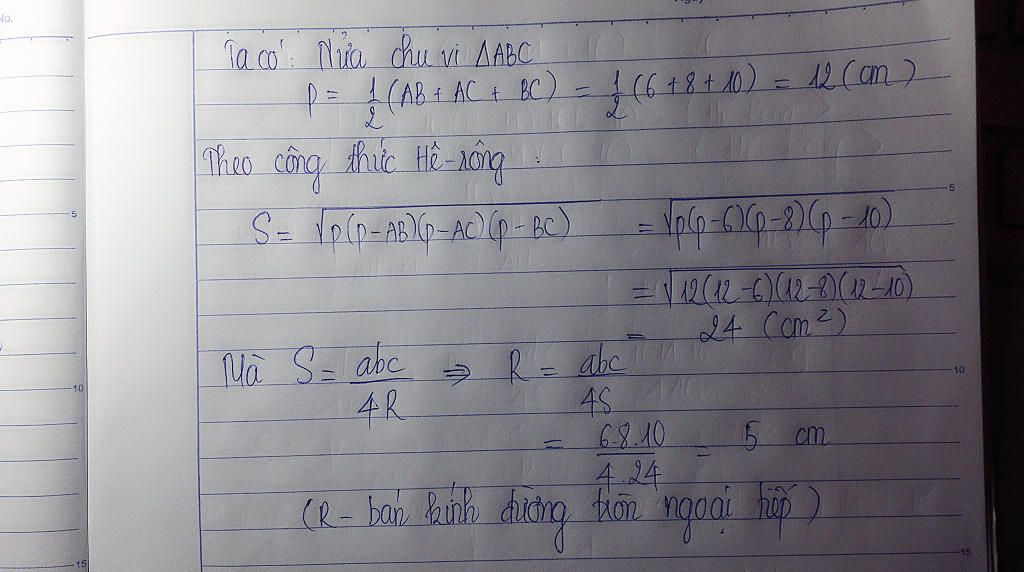 No.
Ta có: Nửa chu vi ΔABC
p = 1/2 (AB + AC + BC) = 1/2 (6 + 8 + 10) = 12 (cm)
Theo công thức Hê-rông :
S = √p(p-AB)(p-AC)(p-BC) = √p(p-6)(p-8)(p-10)
= √12(12-6)(12-8)(12-10)
= 24 (cm²)
Mà S = abc/4R ⇒ R = abc/4S
= 6.8.10/4.24 = 5 cm
(R - bán kính đường tròn ngoại tiếp)
5
10
15
5
10
15